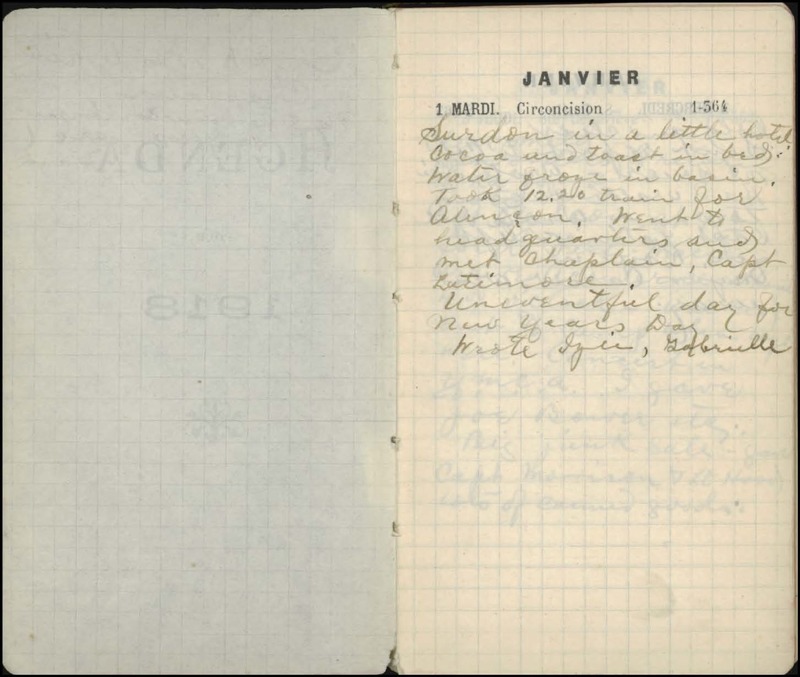 JANVIER
1 MARDI. Circoncision 1-364
Surdon in a little hotel
Cocoa and toast in bed.
Water froze in basin.
Took 12.20 train for
Alencon. Went to
headquarters and
met Chaplain, Capt
Latimore.
Uneventful day for
New Years Day
Wrote Gabrielle
AGENDA
1918